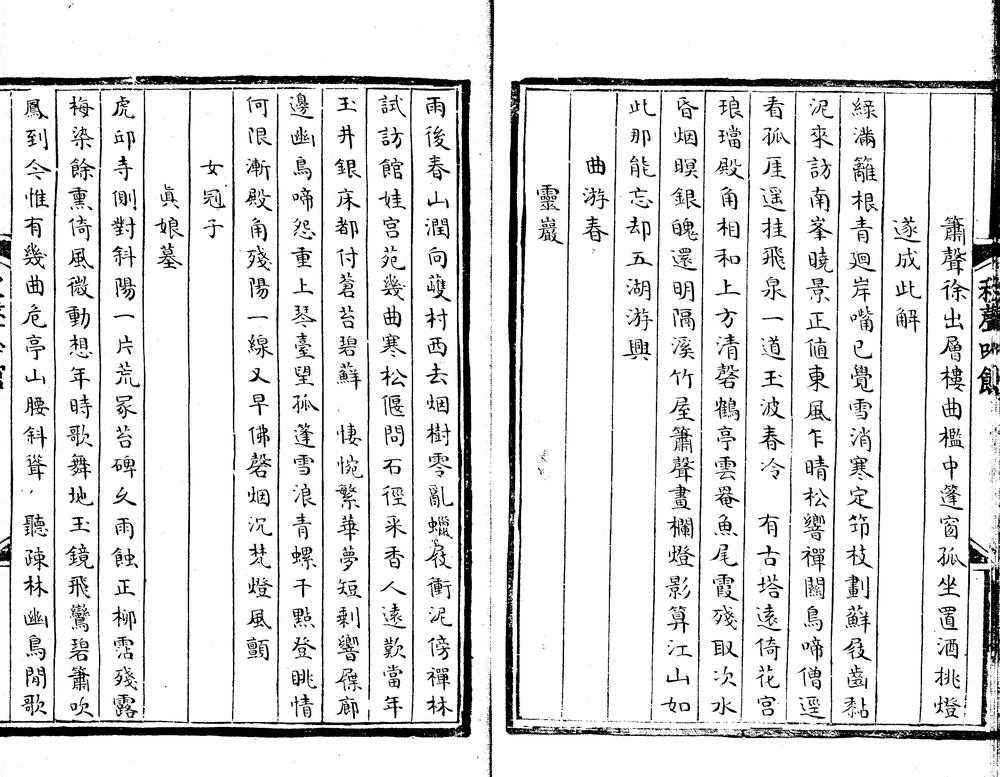 簫聲徐出層樓曲檻中篷窗孤坐置酒挑燈
遂成此解
綠滿籬根青廻岸嘴已覺雪消寒定笻枝劃蘚屐齒黏
泥來訪南峯曉景正值東風乍晴松響禪關鳥啼僧逕
看孤厓遥挂飛泉一道玉波春冷　有古塔遠倚花宫
琅璫殿角相和上方清磬鶴亭雲罨魚尾霞殘取次水
昏烟暝銀魄還明隔溪竹屋簫聲畫欄燈影算江山如
此那能忘却五湖游興
曲游春
靈巖
雨後春山潤向䕶村西去烟樹零亂蠟屐衝泥傍禪林
試訪館娃宫苑幾曲寒松偃問石徑采香人遠歎當年
玉井銀床都付蒼苔碧蘚　悽惋繁華夢短剩響屧廊
邊幽鳥啼怨重上琴臺望孤篷雪浪青螺千點登眺情
何限漸殿角殘陽一線又早佛磬烟沉梵燈風顫
女冠子
眞娘墓
虎邱寺側對斜陽一片荒冢苔碑久雨蝕正柳霑殘露
梅染餘熏倚風微動想年時歌舞地玉鏡飛鸞碧簫吹
鳳到今惟有幾曲危亭山腰斜聳　聽疎林幽鳥閒歌